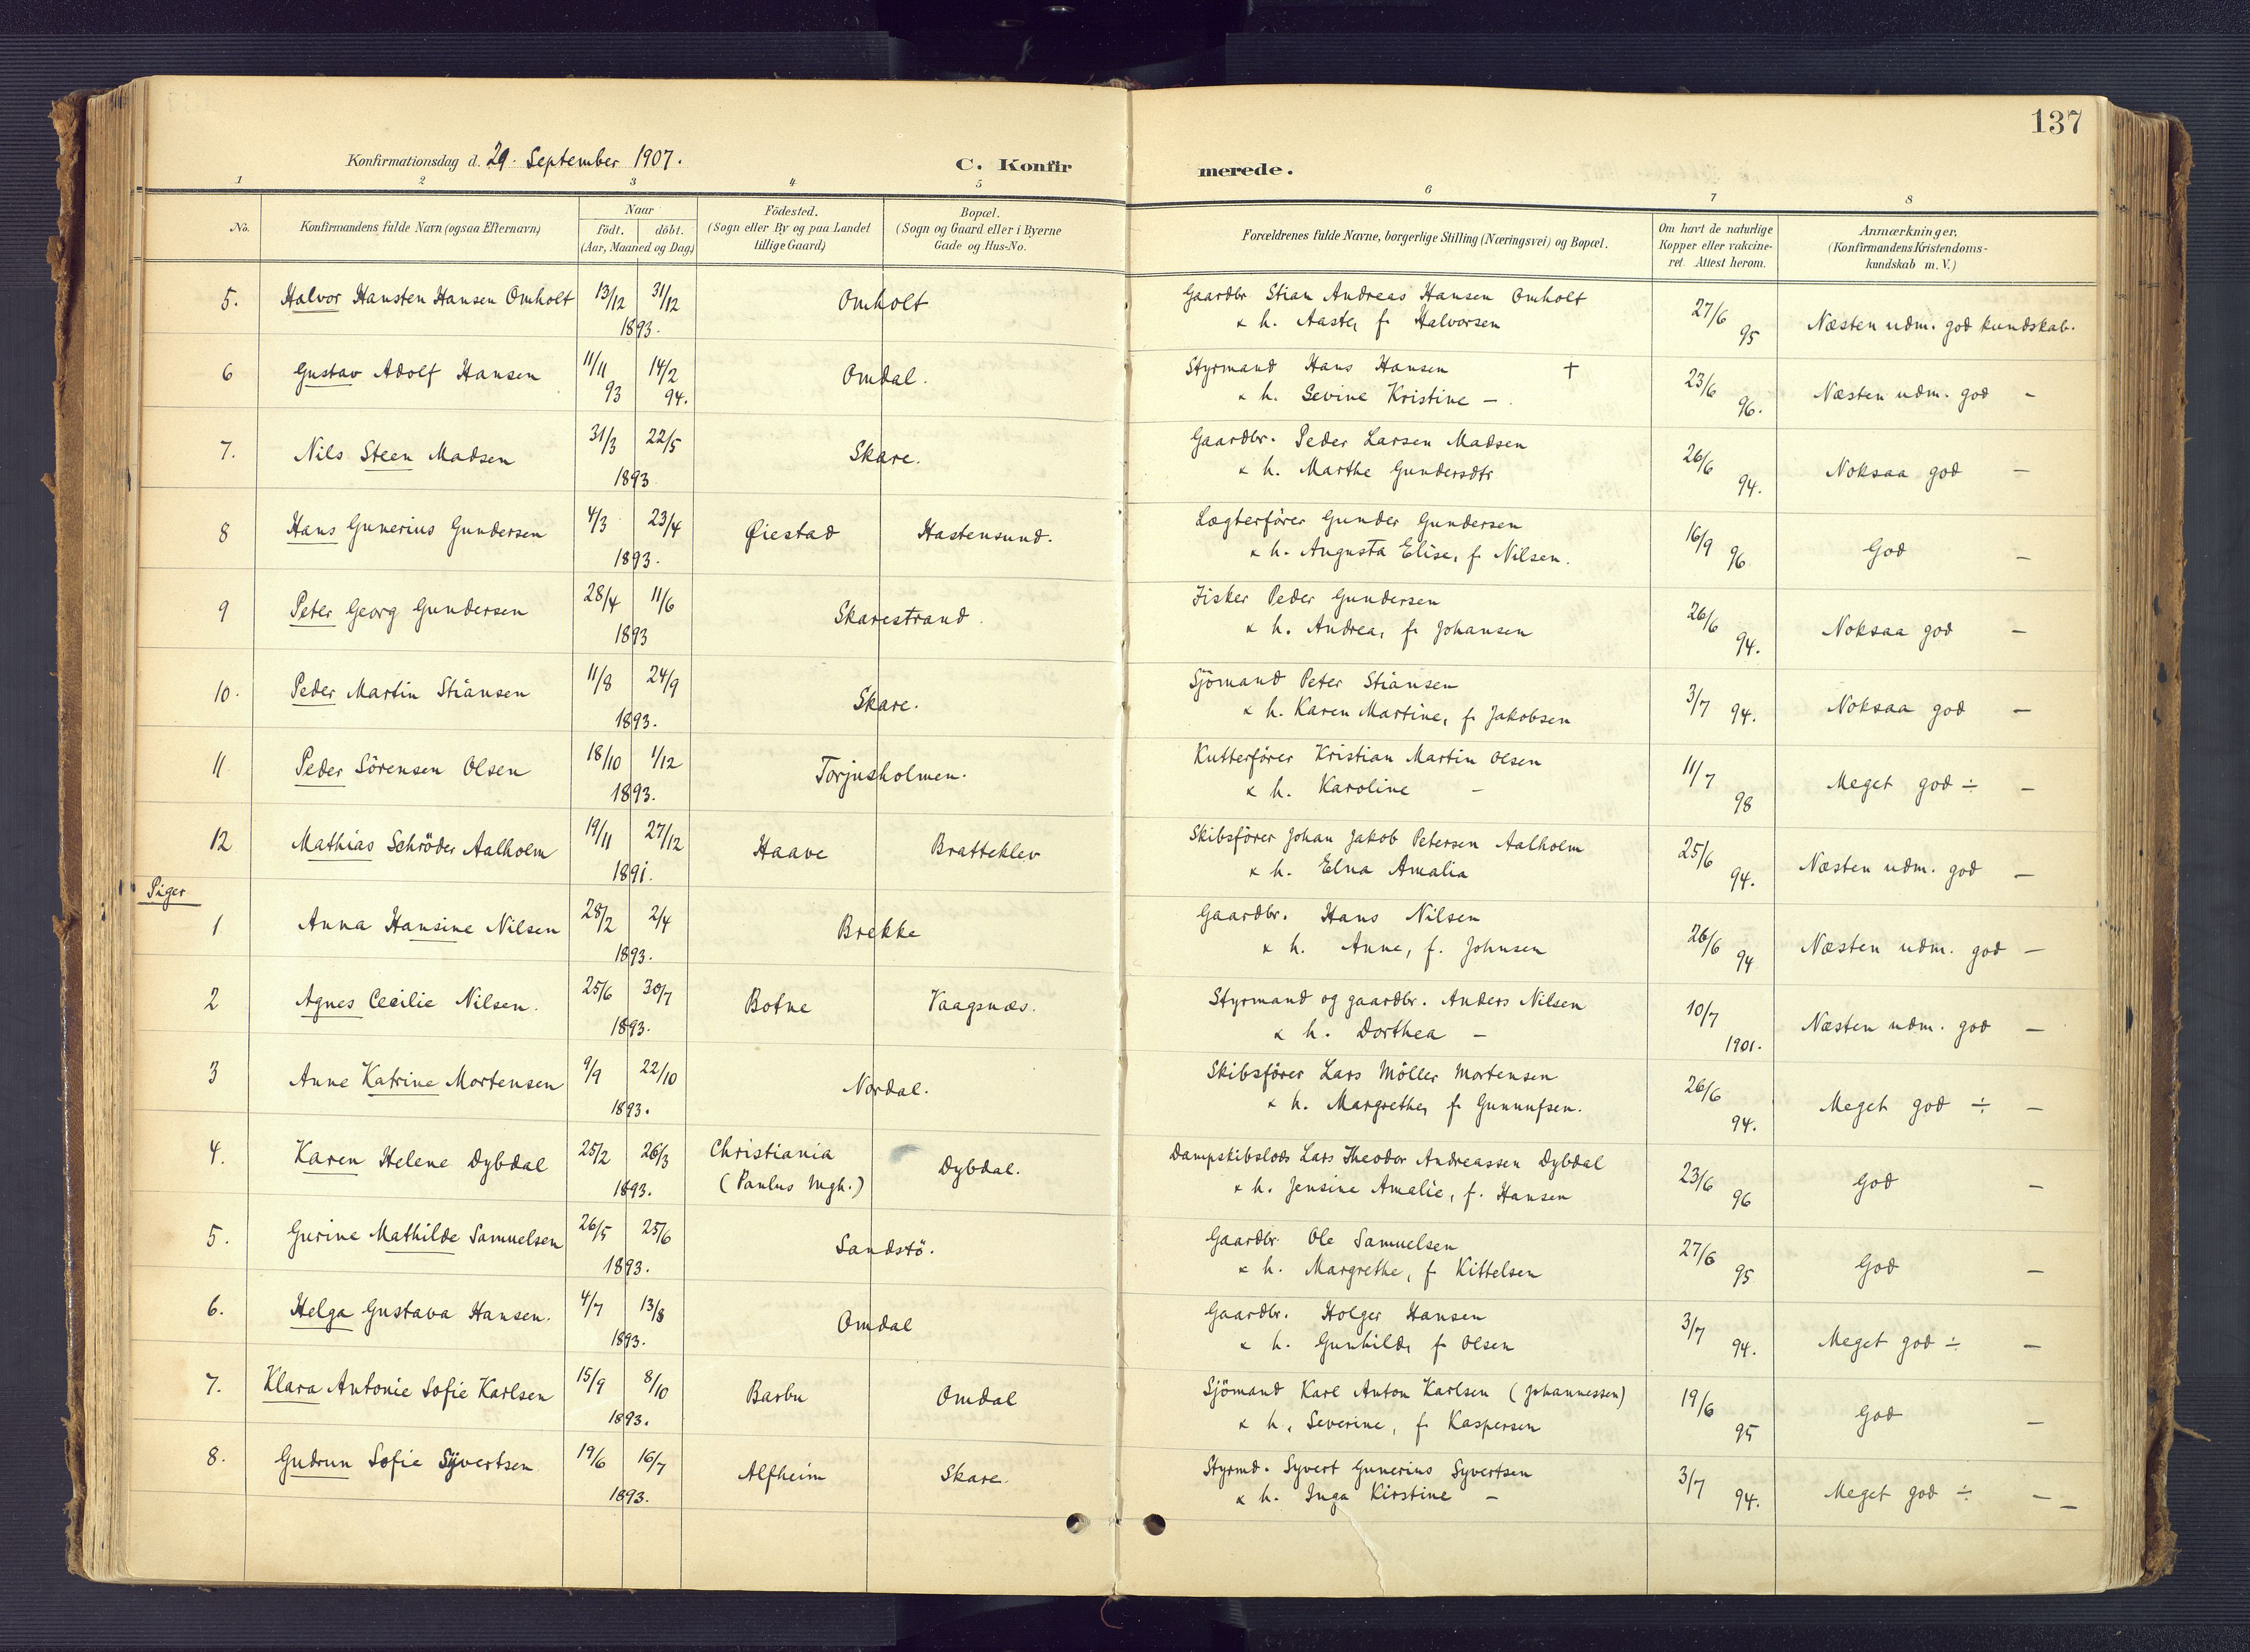 137
Konfirmationsdag d. 29. September 1907.
C. Konfirmerede.
1 2 3 4 5 6 7 8
No. Konfirmandens fulde Navn (ogsaa Efternavn) Naar födt. döbt. (Aar, Maaned og Dag) Födested. (Sogn eller By og paa Landet tillige Gaard) Bopæl. (Sogn og Gaard eller i Byerne Gade og Hus-No. Forældrenes fulde Navne, borgerlige Stilling (Næringsvei) og Bopæl. Om havt de naturlige Kopper eller vakcineret. Attest herom. Anmærkninger. (Konfirmandens Kristendomskundskab m. V.)
5. Halvor Hansten Hansen Omholt 13/12 31/12 Omholt Gaardbr Stian Andreas Hansen Omholt 27/6
1893. & h. Aaste, f. Halvorsen 95 Næsten udm. god kundskab.
6 Gustav Adolf Hansen 11/11 14/2 Omdal. Styrmand Hans Hansen + 23/6
93 94. & h. Sevine Kristine – 96. Næsten udm. god –
7. Nils Steen Madsen 31/3 22/5 Skare. Gaardbr. Peder Larsen Madsen 26/6
1893 & h. Marthe Gundersdtr 94. Noksaa god –
8 Hans Gunerius Gundersen 4/3 23/4 Øiestad Hastensund. Lægterförer Gunder Gundersen 16/9
1893. & h. Augusta Elise, f. Nilsen. 96 God –
9 Peter Georg Gundersen 28/4 11/6 Skarestrand. Fisker Peder Gundersen 26/6
1893 & h. Andrea, f. Johansen 94. Noksaa god –
10. Peder Martin Stiansen 11/8 24/9 Skare. Sjömand Peter Stiansen 3/7
1893. & h. Karen Martine, f. Jakobsen 94. Noksaa god –
11 Peder Sörensen Olsen 18/10 1/12 Torjusholmen. Kutterförer Kristian Martin Olsen 11/7
1893. & h. Karoline – 98 Meget god ÷ –
12 Mathias Schröder Aalholm 19/11 27/12 Haave Bratteklev Skibsförer Johan Jakob Petersen Aalholm 25/6
1891. & h. Elna Amalia 94. Næsten udm. god –
Piger
1 Anna Hansine Nilsen 28/2 2/4 Brekke Gaardbr. Hans Nilsen 26/6
1893. & h. Anne, f. Johnsen 94 Næsten udm. god –
2 Agnes Cecilie Nilsen. 25/6 30/7 Botne Vaagsnæs. Styrmand og gaardbr. Anders Nilsen 10/7
1893. & h. Dorthea – 1901. Næsten udm. god –
3 Anne Katrine Mortensen 9/9 22/10 Nordal. Skibsförer Lars Möller Mortensen 26/6
1893. & h. Margrethe, f. Gunnufsen. 94. Meget god ÷ –
4. Karen Helene Dybdal 25/2 26/3 Christiania (Paulus mgh.) Dybdal. Dampskibslods Lars Theodor Andreassen Dybdal 23/6
1893. & h. Jensine Amalie, f. Hansen 96 God –
5. Gurine Mathilde Samuelsen 26/5 25/6 Sandstö. Gaardbr. Ole Samuelsen 27/6
1893. & h. Margrethe, f. Kittelsen 95 God –
6. Helga Gustava Hansen. 4/7 13/8 Omdal Gaardbr. Holger Hansen 3/7
1893. & h. Gunhild, f. Olsen 94. Meget god ÷ –
7. Klara Antonie Sofie Karlsen 15/9 8/10 Barbu Omdal Sjömand Karl Anton Karlsen (Johannessen) 19/6
1893. & h. Severine, f. Kaspersen 95 God –
8. Gudrun Sofie Syvertsen 19/6 16/7 Alfheim Skare. Styrmd. Syvert Gunerius Syvertsen 3/7
1893. & h. Inga Kirstine – 94. Meget god ÷ – –